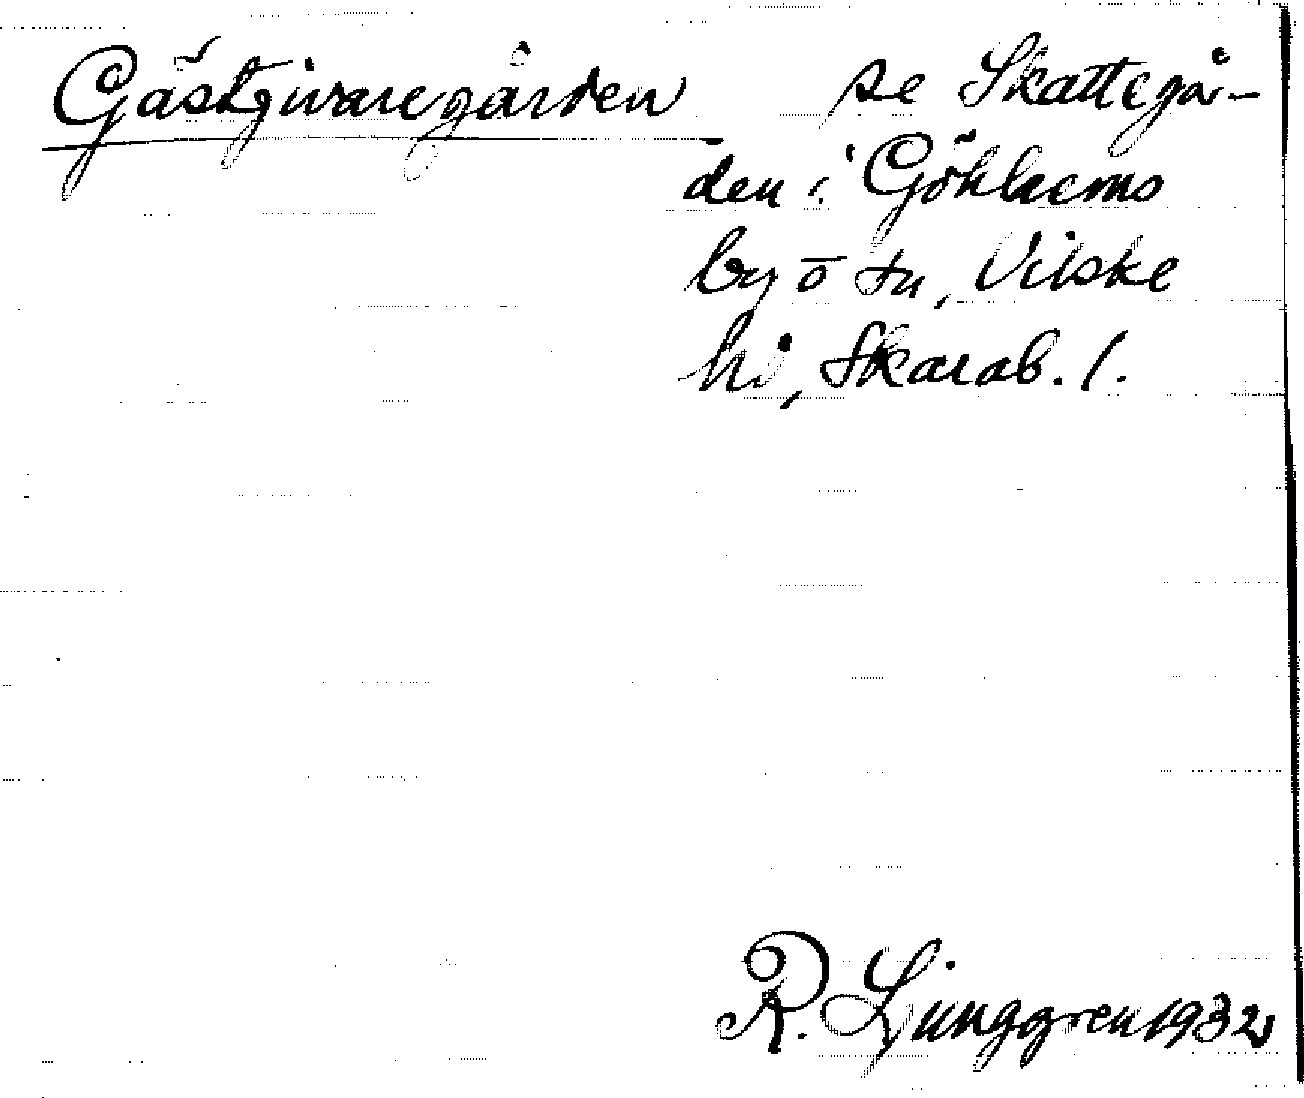 Gästgivaregården se Skattegår-
den i Göhlems
by o sn, Vilske
hd, Skarab. l.
R. Ljunggren 1932